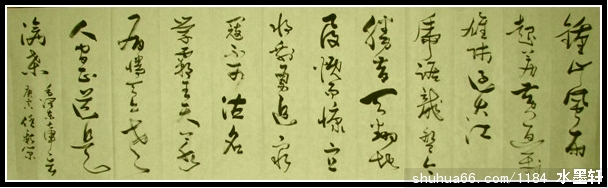 鍾山风雨
起蒼黄百万
雄师过大江
虎踞龍盤今
勝昔天翻地
覆慨而慷宜
将剩勇追窮
寇不可沽名
学霸王天若
有情天亦老
人间正道是
滄桑
毛泽东七律一首
shuhua66.com/1184 水墨轩